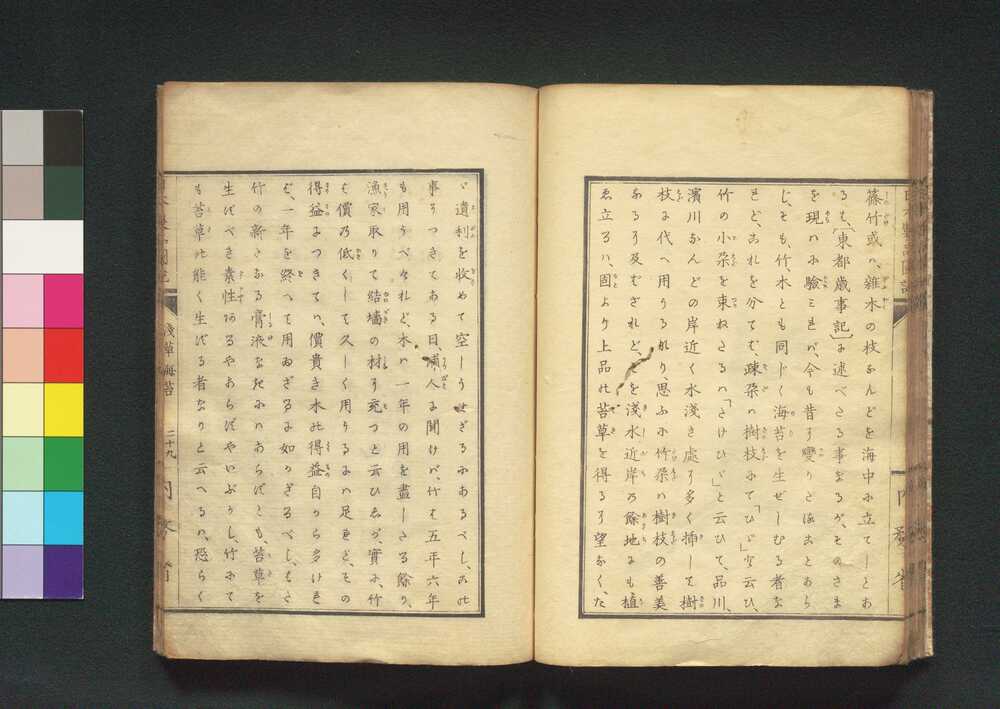 篠竹或ハ、雜木の枝なんどを海中に立てしとあ
るも、[東都歳事記]に述べたる事なるが、そのさま
を現ハに驗ミれバ、今も昔に變りたることあら
じ、そも、竹、木とも同じく海苔を生ぜしむる者な
れど、これを分てむ疎朶の樹枝にて「ひゞ」と云ひ、
竹の小朶を束ねたるハ「たけひゞ」と云ひて、品川、
濱川なんどの岸近く水淺き處に多く挿して樹
枝に代へ用うるなり、思ふに竹朶ハ樹枝の善美
なるに及ばざれど、そを淺水近岸の餘地にも植
ゑ立るハ、固より上品の苔草を得るに望なく、た
ゞ遺利を收めて空しうせざるにあるべし、この
事につきてある日、浦人に聞けバ、竹も五年六年
も用うべけれど、木ハ一年の用を盡したる餘り、
漁家取りて結墻の材に充つと云ひゐバ、實に、竹
も價の低くして久しく用うるにハ足れど、その
得益につきてハ、價貴き木の得益自から多けれ
ば、一年を終へて用ゐざるに如かざるべし、もと
竹の新たなる膏液なきにハあらねども、苔草を
生ずべき素性あるやあらずやいぶかし、竹にて
も苔草の能く生ずる者なりと云へるハ、恐らく
淺草海苔
二十九
內務省